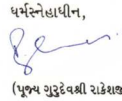 ધર્મસ્નેહાધીન,
(પૂજ્ય ગુરુદેવશ્રી રાકેશભ